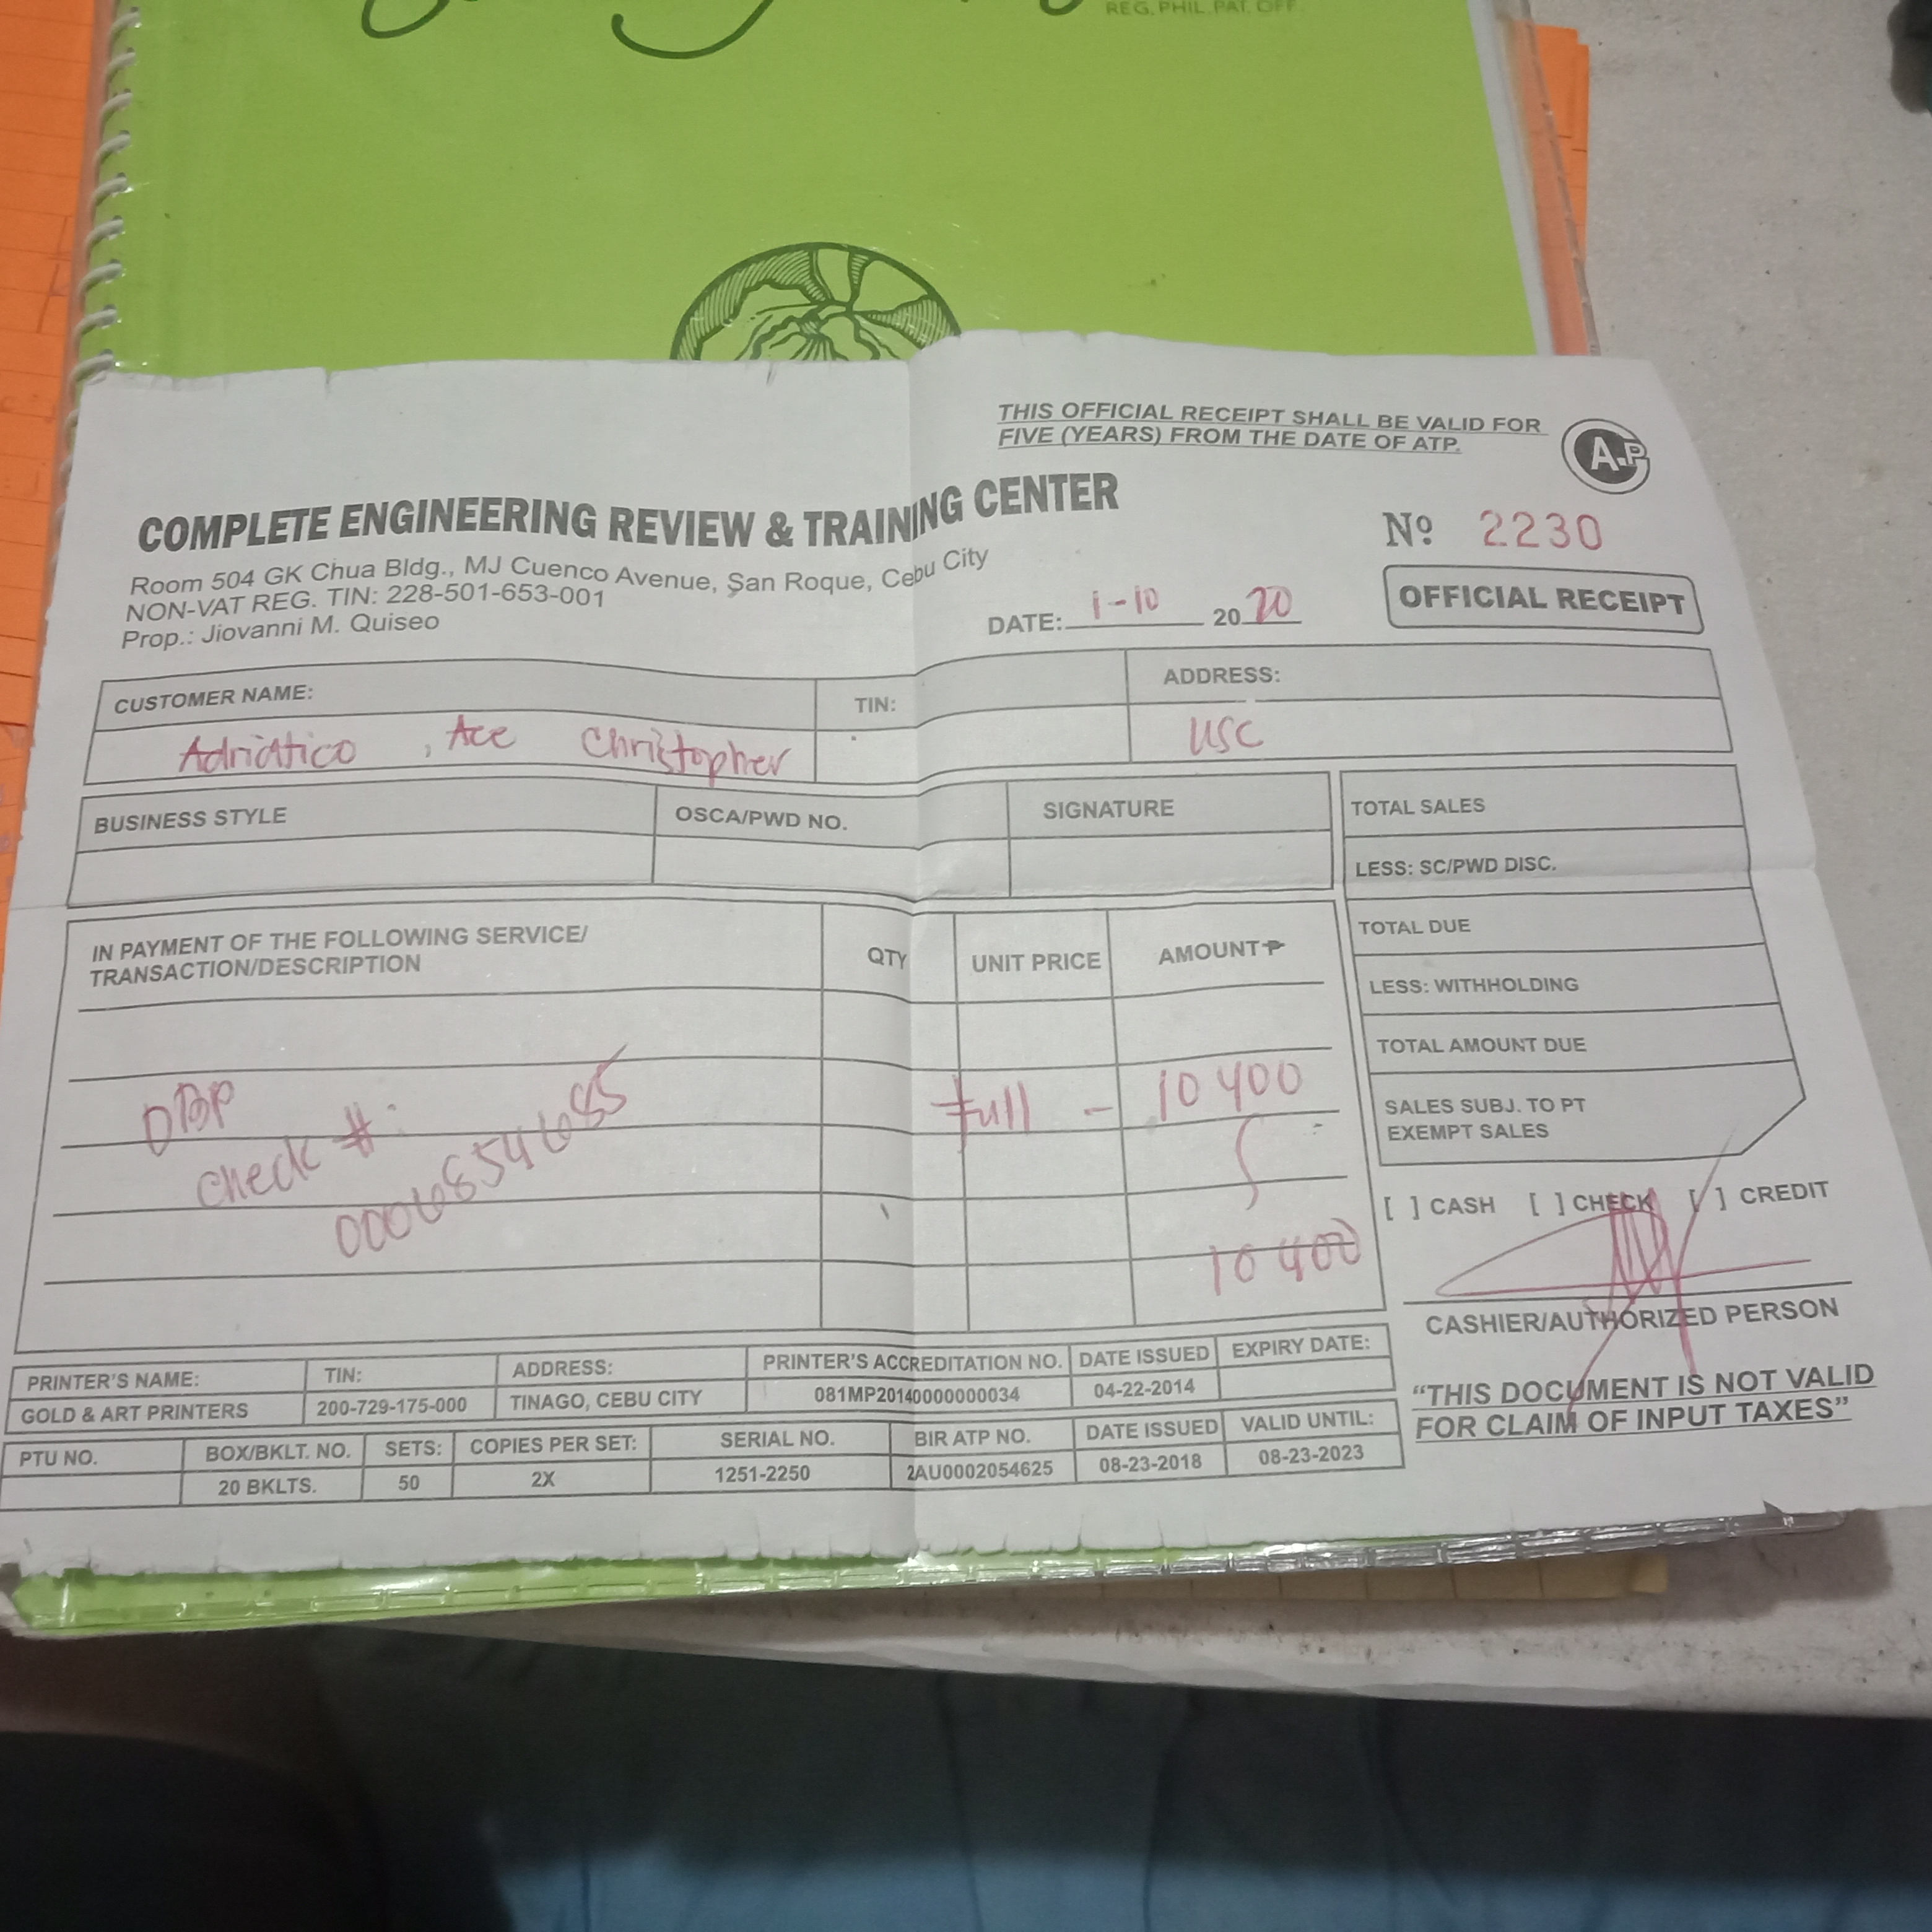 REG. PHIL. PAT. OFF.
THIS OFFICIAL RECEIPT SHALL BE VALID FOR
FIVE (YEARS) FROM THE DATE OF ATP.
COMPLETE ENGINEERING REVIEW & TRAINING CENTER
Room 504 GK Chua Bldg., MJ Cuenco Avenue, San Roque, Cebu City
NON-VAT REG. TIN: 228-501-653-001
Prop.: Jiovanni M. Quiseo
Nº 2230
OFFICIAL RECEIPT
DATE: 1-10 2020
CUSTOMER NAME: TIN: ADDRESS:
Adriatico, Ace Christopher USC
BUSINESS STYLE OSCA/PWD NO. SIGNATURE
TOTAL SALES
LESS: SC/PWD DISC.
TOTAL DUE
LESS: WITHHOLDING
TOTAL AMOUNT DUE
SALES SUBJ. TO PT
EXEMPT SALES
IN PAYMENT OF THE FOLLOWING SERVICE/
TRANSACTION/DESCRIPTION QTY UNIT PRICE AMOUNT ₱
DBP Full - 10 400
Check #:
0006854685
10 400
[ ] CASH [ ] CHECK [ ] CREDIT
CASHIER/AUTHORIZED PERSON
"THIS DOCUMENT IS NOT VALID
FOR CLAIM OF INPUT TAXES"
PRINTER'S NAME: TIN: ADDRESS: PRINTER'S ACCREDITATION NO. DATE ISSUED EXPIRY DATE:
GOLD & ART PRINTERS 200-729-175-000 TINAGO, CEBU CITY 081MP20140000000034 04-22-2014
PTU NO. BOX/BKLT. NO. SETS: COPIES PER SET: SERIAL NO. BIR ATP NO. DATE ISSUED VALID UNTIL:
20 BKLTS. 50 2X 1251-2250 2AU0002054625 08-23-2018 08-23-2023